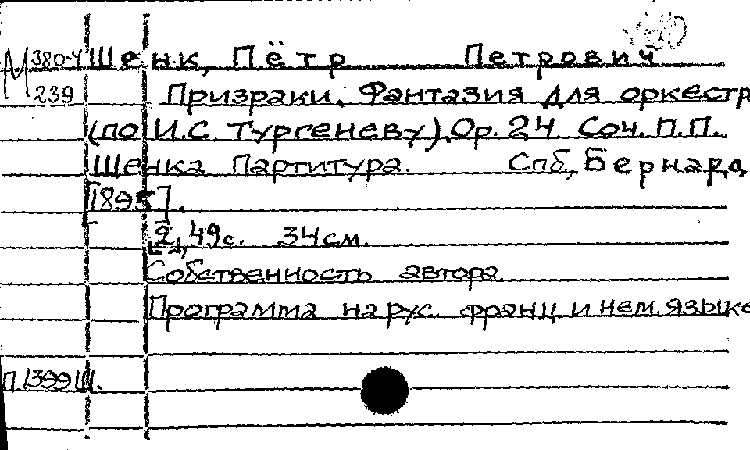 М 380-4 Шенк, Пётр Петрович
239 Призраки. Фантазия для оркестр
(по И.С. Тургеневу). Ор. 24 Соч. П.П.
Шенка Партитура. Спб, Бернард
[1895].
[2], 49с. 34 см.
Собственность автора.
Программа на рус. франц и нем. языке
П.1399Ш.